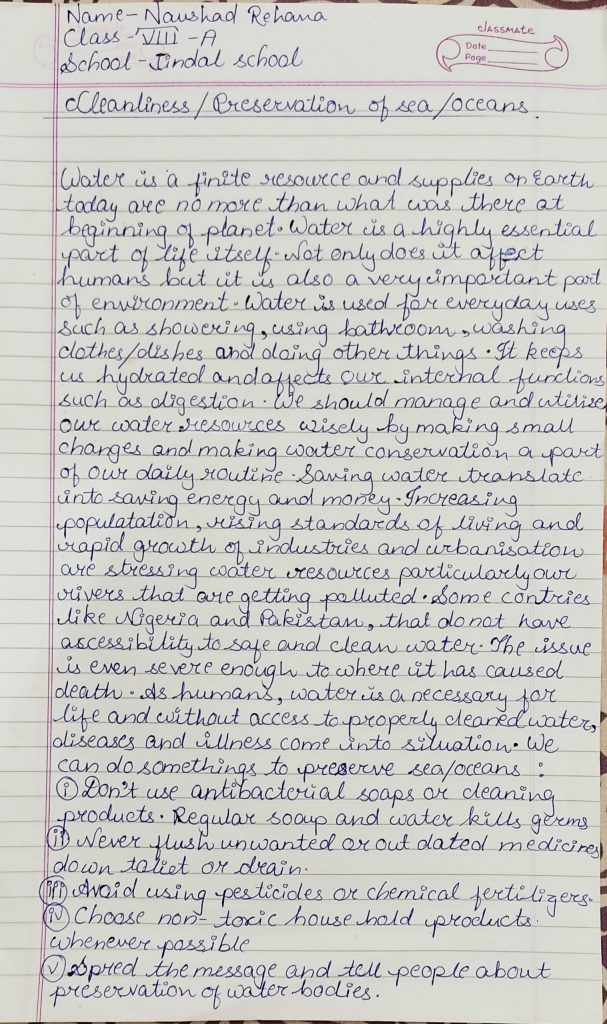 Name- Naushad Rehana
Class-VIII-A
School-Jindal school
classmate
Date
Page
Cleanliness/Preservation of sea/oceans.
Water is a finite resource and supplies on Earth
today are no more than what was there at
beginning of planet. Water is a highly essential
part of life itself. Not only does it affect
humans but it is also a very important part
of environment. Water is used for everyday uses
such as showering, using bathroom, washing
clothes/dishes and doing other things. It keeps
us hydrated and affects our internal functions
such as digestion. We should manage and utilise
our water resources wisely by making small
changes and making water conservation a part
of our daily routine. Saving water translate
into saving energy and money. Increasing
populatation, rising standards of living and
rapid growth of industries and urbanisation
are stressing water resources particularly our
rivers that are getting polluted. Some contries
like Nigeria and Pakistan, that do not have
ascessibility to safe and clean water. The issue
is even severe enough to where it has caused
death. As humans, water is a necessary for
life and without access to properly cleaned water,
diseases and illness come into situation. We
can do somethings to preserve sea/oceans :
(i) Don't use antibacterial soaps or cleaning
products. Regular soap and water kills germs
(ii) Never flush unwanted or out dated medicines
down toliet or drain.
(iii) Avoid using pesticides or chemical fertilizers.
(iv) Choose non-toxic household products
whenever possible
(v) Spred the message and tell people about
preservation of water bodies.